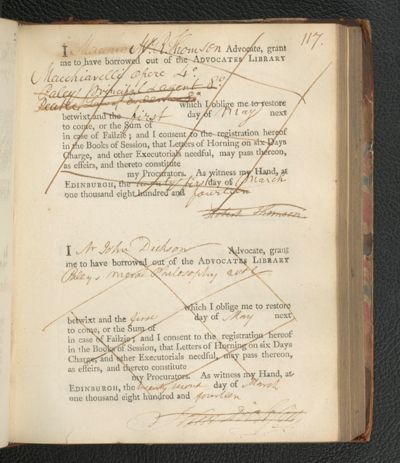 117.
I Mr R Thomson Advocate, grant
me to have borrowed out of the ADVOCATES LIBRARY
Macchiavelli opere 4o.
Principal & agent 8o
which I oblige me to restore
betwixt and the first day of May next
to come, or the Sum of
in case of Failzie; and I consent to the registration hereof
in the Books of Session, that Letters of Horning on six Days
Charge, and other Executorials needful, may pass thereon,
as effeirs, and thereto constitute
my Procurators. As witness my Hand, at
EDINBURGH, the twenty first day of March
one thousand eight hundred and fourteen
Thomson
I Mr John Dickson Advocate, grant
me to have borrowed out of the ADVOCATES LIBRARY
Paleys moral Philosophy
which I oblige me to restore
betwixt and the first day of May next
to come, or the Sum of
in case of Failzie; and I consent to the registration hereof
in the Books of Session, that Letters of Horning on six Days
Charge, and other Executorials needful, may pass thereon,
as effeirs, and thereto constitute
my Procurators. As witness my Hand, at
EDINBURGH, the twenty second day of March
one thousand eight hundred and fourteen